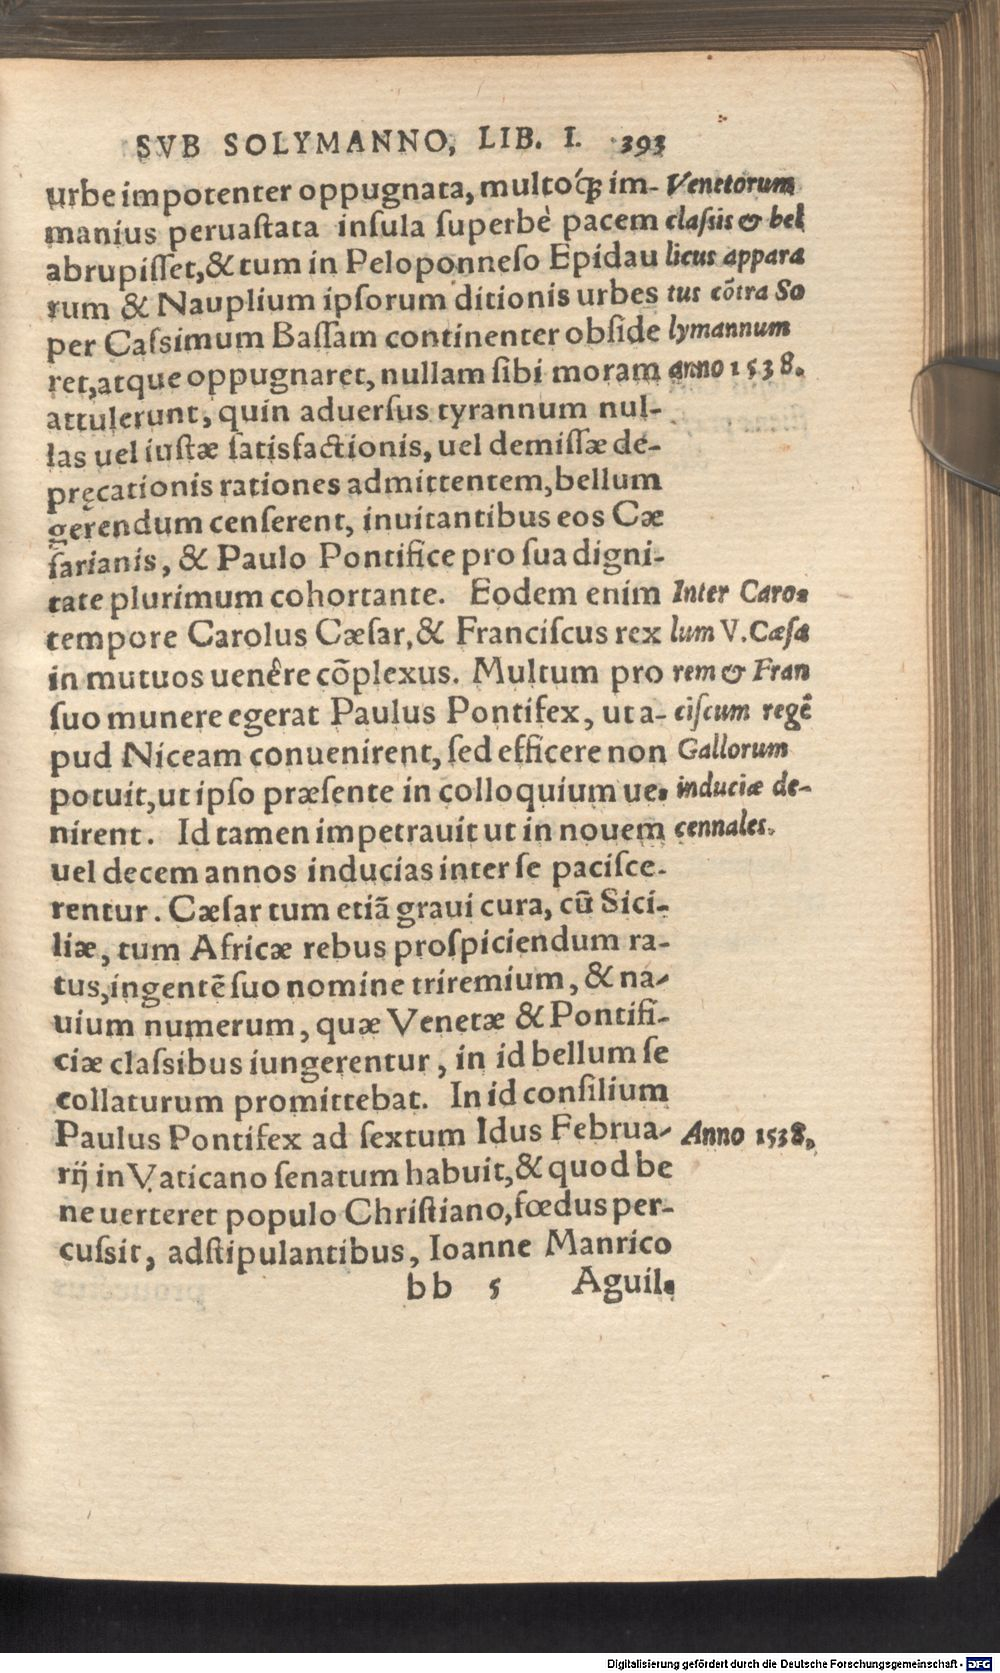 SVB SOLYMANNO, LIB. I. 393
urbe impotenter oppugnata, multoq́ꝫ im-
manius peruaſtata inſula ſuperbè pacem
abrupiſſet,& tum in Peloponneſo Epidau
rum & Nauplium ipſorum ditionis urbes
per Caſsimum Baſſam continenter obſide
ret,atque oppugnaret, nullam ſibi moram
attulerunt, quin aduerſus tyrannum nul-
las uel iuſtæ ſatisfactionis, uel demiſſæ de-
pręcationis rationes admittentem,bellum
gerendum cenſerent, inuitantibus eos Cæ
ſarianis, & Paulo Pontifice pro ſua digni-
tate plurimum cohortante. Eodem enim
tempore Carolus Cæſar,& Franciſcus rex
in mutuos uenêre cõplexus. Multum pro
ſuo munere egerat Paulus Pontifex, ut a-
pud Niceam conuenirent, ſed efficere non
potuit,ut ipſo præſente in colloquium ue-
nirent. Id tamen impetrauit ut in nouem
uel decem annos inducias inter ſe paciſce-
rentur. Cæſar tum etiã graui cura, cũ Sici-
liæ, tum Africæ rebus proſpiciendum ra-
tus,ingentẽ ſuo nomine triremium, & na-
uium numerum, quæ Venetæ & Pontifi-
ciæ claſsibus iungerentur, in id bellum ſe
collaturum promittebat. In id conſilium
Paulus Pontifex ad ſextum Idus Februa-
rij in Vaticano ſenatum habuit,& quod be
ne uerteret populo Chriſtiano,fœdus per-
cuſsit, adſtipulantibus, Ioanne Manrico
bb 5 Aguil-
Venetorum
claſsis & bel
licus appara
tus cõtra So
lymannum
anno 1538.
Inter Caro-
lum V. Cæſa
rem & Fran
ciſcum regẽ
Gallorum
induciæ de-
cennales.
Anno 1538.
Digitalisierung gefördert durch die Deutsche Forschungsgemeinschaft - DFG